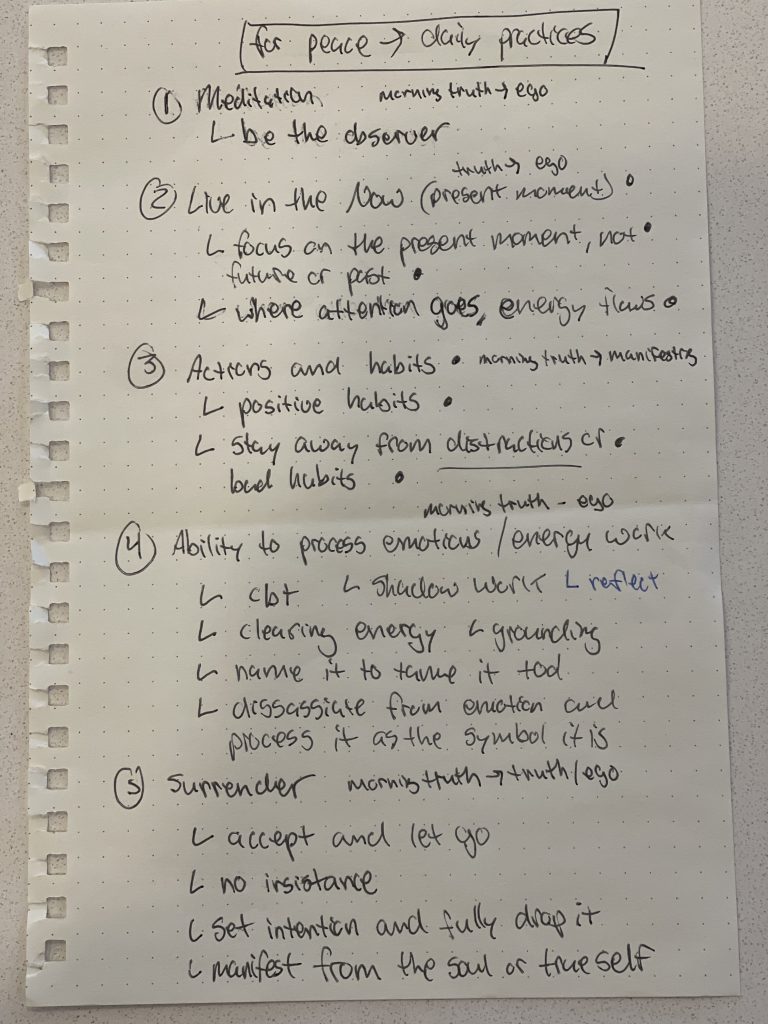 for peace → daily practices
① Meditation morning truth → ego
└ be the observer
truth → ego
② Live in the Now (present moment) •
└ focus on the present moment, not •
future or past •
└ where attention goes, energy flows •
③ Actions and habits • morning truth → manifesting
└ positive habits •
└ stay away from distractions or •
bad habits •
morning truth - ego
④ Ability to process emotions / energy work
└ cbt └ shadow work └ reflect
└ clearing energy └ grounding
└ name it to tame it tod
└ dissassiate from emotion and
process it as the symbol it is
⑤ Surrender morning truth → truth/ego
└ accept and let go
└ no insistance
└ set intention and fully drop it
└ manifest from the soul or true self